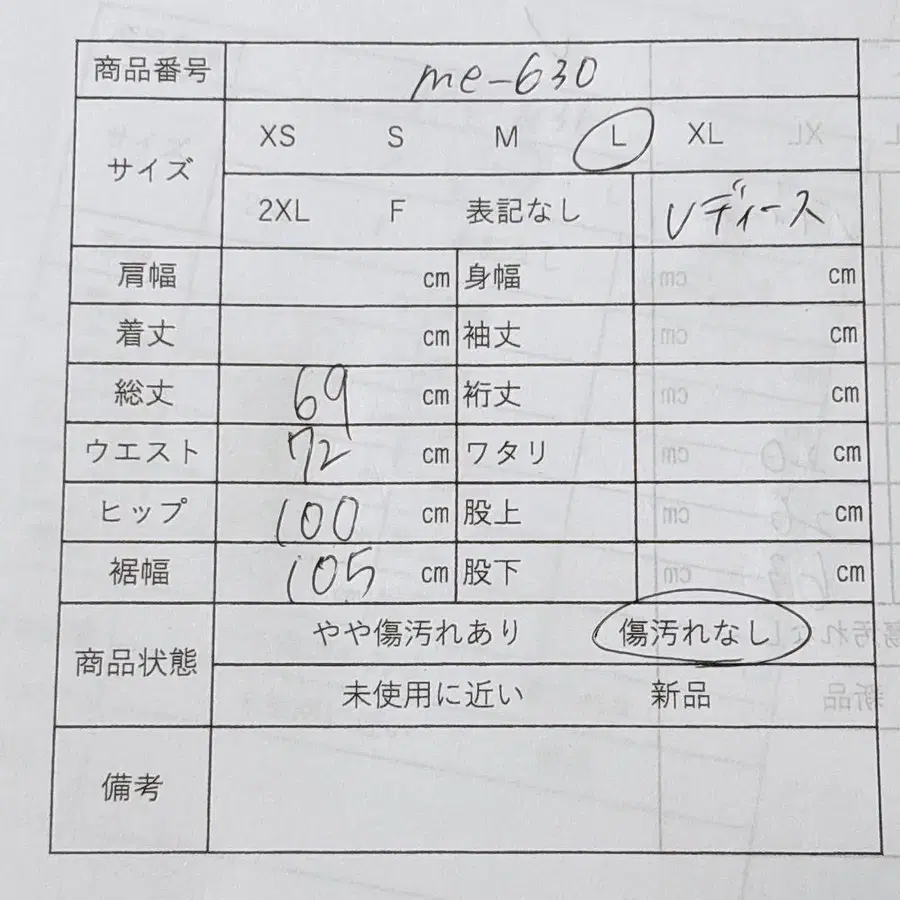 商品番号 me-630
サイズ XS S M L XL
2XL F 表記なし レディース
肩幅 cm 身幅 cm
着丈 cm 袖丈 cm
総丈 69 cm 裄丈 cm
ウエスト 72 cm ワタリ cm
ヒップ 100 cm 股上 cm
裾幅 105 cm 股下 cm
商品状態 やや傷汚れあり 傷汚れなし
未使用に近い 新品
備考